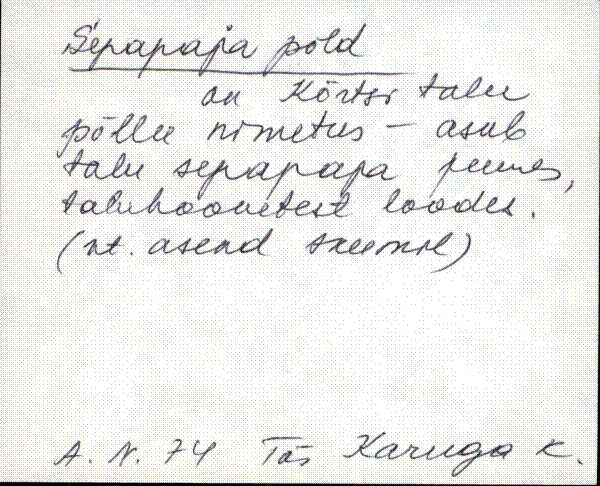 Sepapaja põld
on Kõrtsi talu
põllu nimetus – asub
talu sepapaja juures,
taluhoonetest loodes.
(vt. asend skeemil)
A. N. 74 Tõs Karuga k.